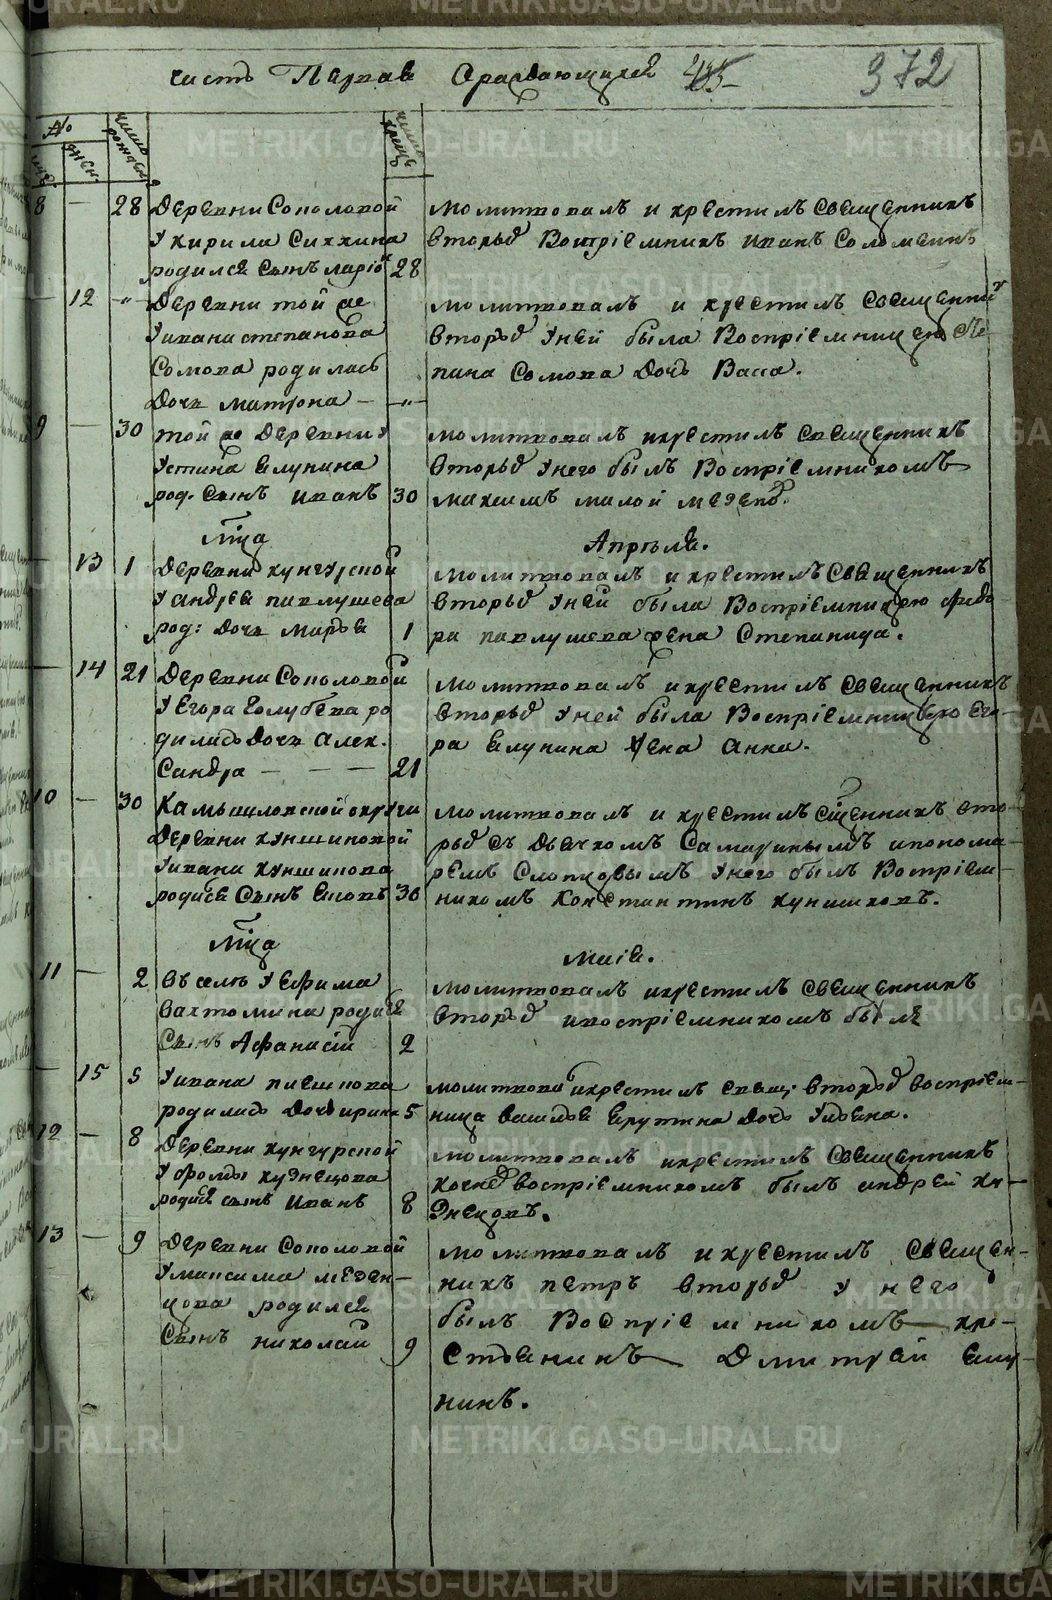 часть Первая Ораждающихся 372
№
муж жен
число рожден
число крещ
8 — 28 Деревни Соколовой
У кирила Сиккина
родился Сынъ ларіо 28
молитвовалъ и крестилъ Священникъ
вторыя Воспріемникъ иванъ Соломеинъ
— 12 -"- Деревни той же
У ивана степанова
Сомова родилась
Дочь матрона — -"-
молитвовалъ и крестилъ Священни
вторыя У ней была Воспріемницею Сте
пана Сомова Дочь Васса.
9 — 30 той же Деревни У
Устина Елунина
род. Сынъ иванъ 30
молитвовалъ икрестилъ Священникъ
вторыя У него былъ Воспріемникомъ
максимъ
Мца Апреля.
— 13 1 Деревни кунгурской
У андрея павлушева
род: Дочь марья 1
молитвовалъ и крестилъ Священникъ
вторыя У ней была Воспріемницею Федо
ра павлушева жена Степанида.
— 14 21 Деревни Соколовой
У Егора Голубева ро
дилась Дочь Алек
сандра — — — 21
молитвовалъ икрестилъ Священникъ
вторыя У ней была Воспріемницею Его
ра Елунина жена анна.
10 — 30 Камышловской округи
Деревни кукшиновой
У ивана
родися Сынъ 30
молитвовалъ и крестилъ Сщенникъ вто
рыя съ Дьячкомъ Самаринымъ ипонома
ремъ Слопцовымъ У него былъ Воспріем
никомъ Константинъ
Мца маія.
11 — 2 въ селе У Ефима
Вахтомина родися
Сынъ Афанасій 2
молитвовалъ икрестилъ Священникъ
вторыя ивоспріемникомъ былъ
— 15 5 У ивана
родилась Дочь ирина 5
молитвова икрестилъ свящ: вторыя воспріем
ница Василья Дочь Ульяна.
12 — 8 Деревни кунгурской
У фомы кузнецова
родися сынъ иванъ 8
молитвовалъ икрестилъ Священникъ
воспріемникомъ былъ андрей ку
знецовъ.
13 — 9 Деревни Соколовой
У максима мезен
цова родился
Сынъ николай 9
молитвовалъ икрестилъ Священ
никъ петръ вторыя у него
былъ Воспріемникомъ кре
стьянинъ Дмитрій Елу
нинъ.
METRIKI.GASO-URAL.RU